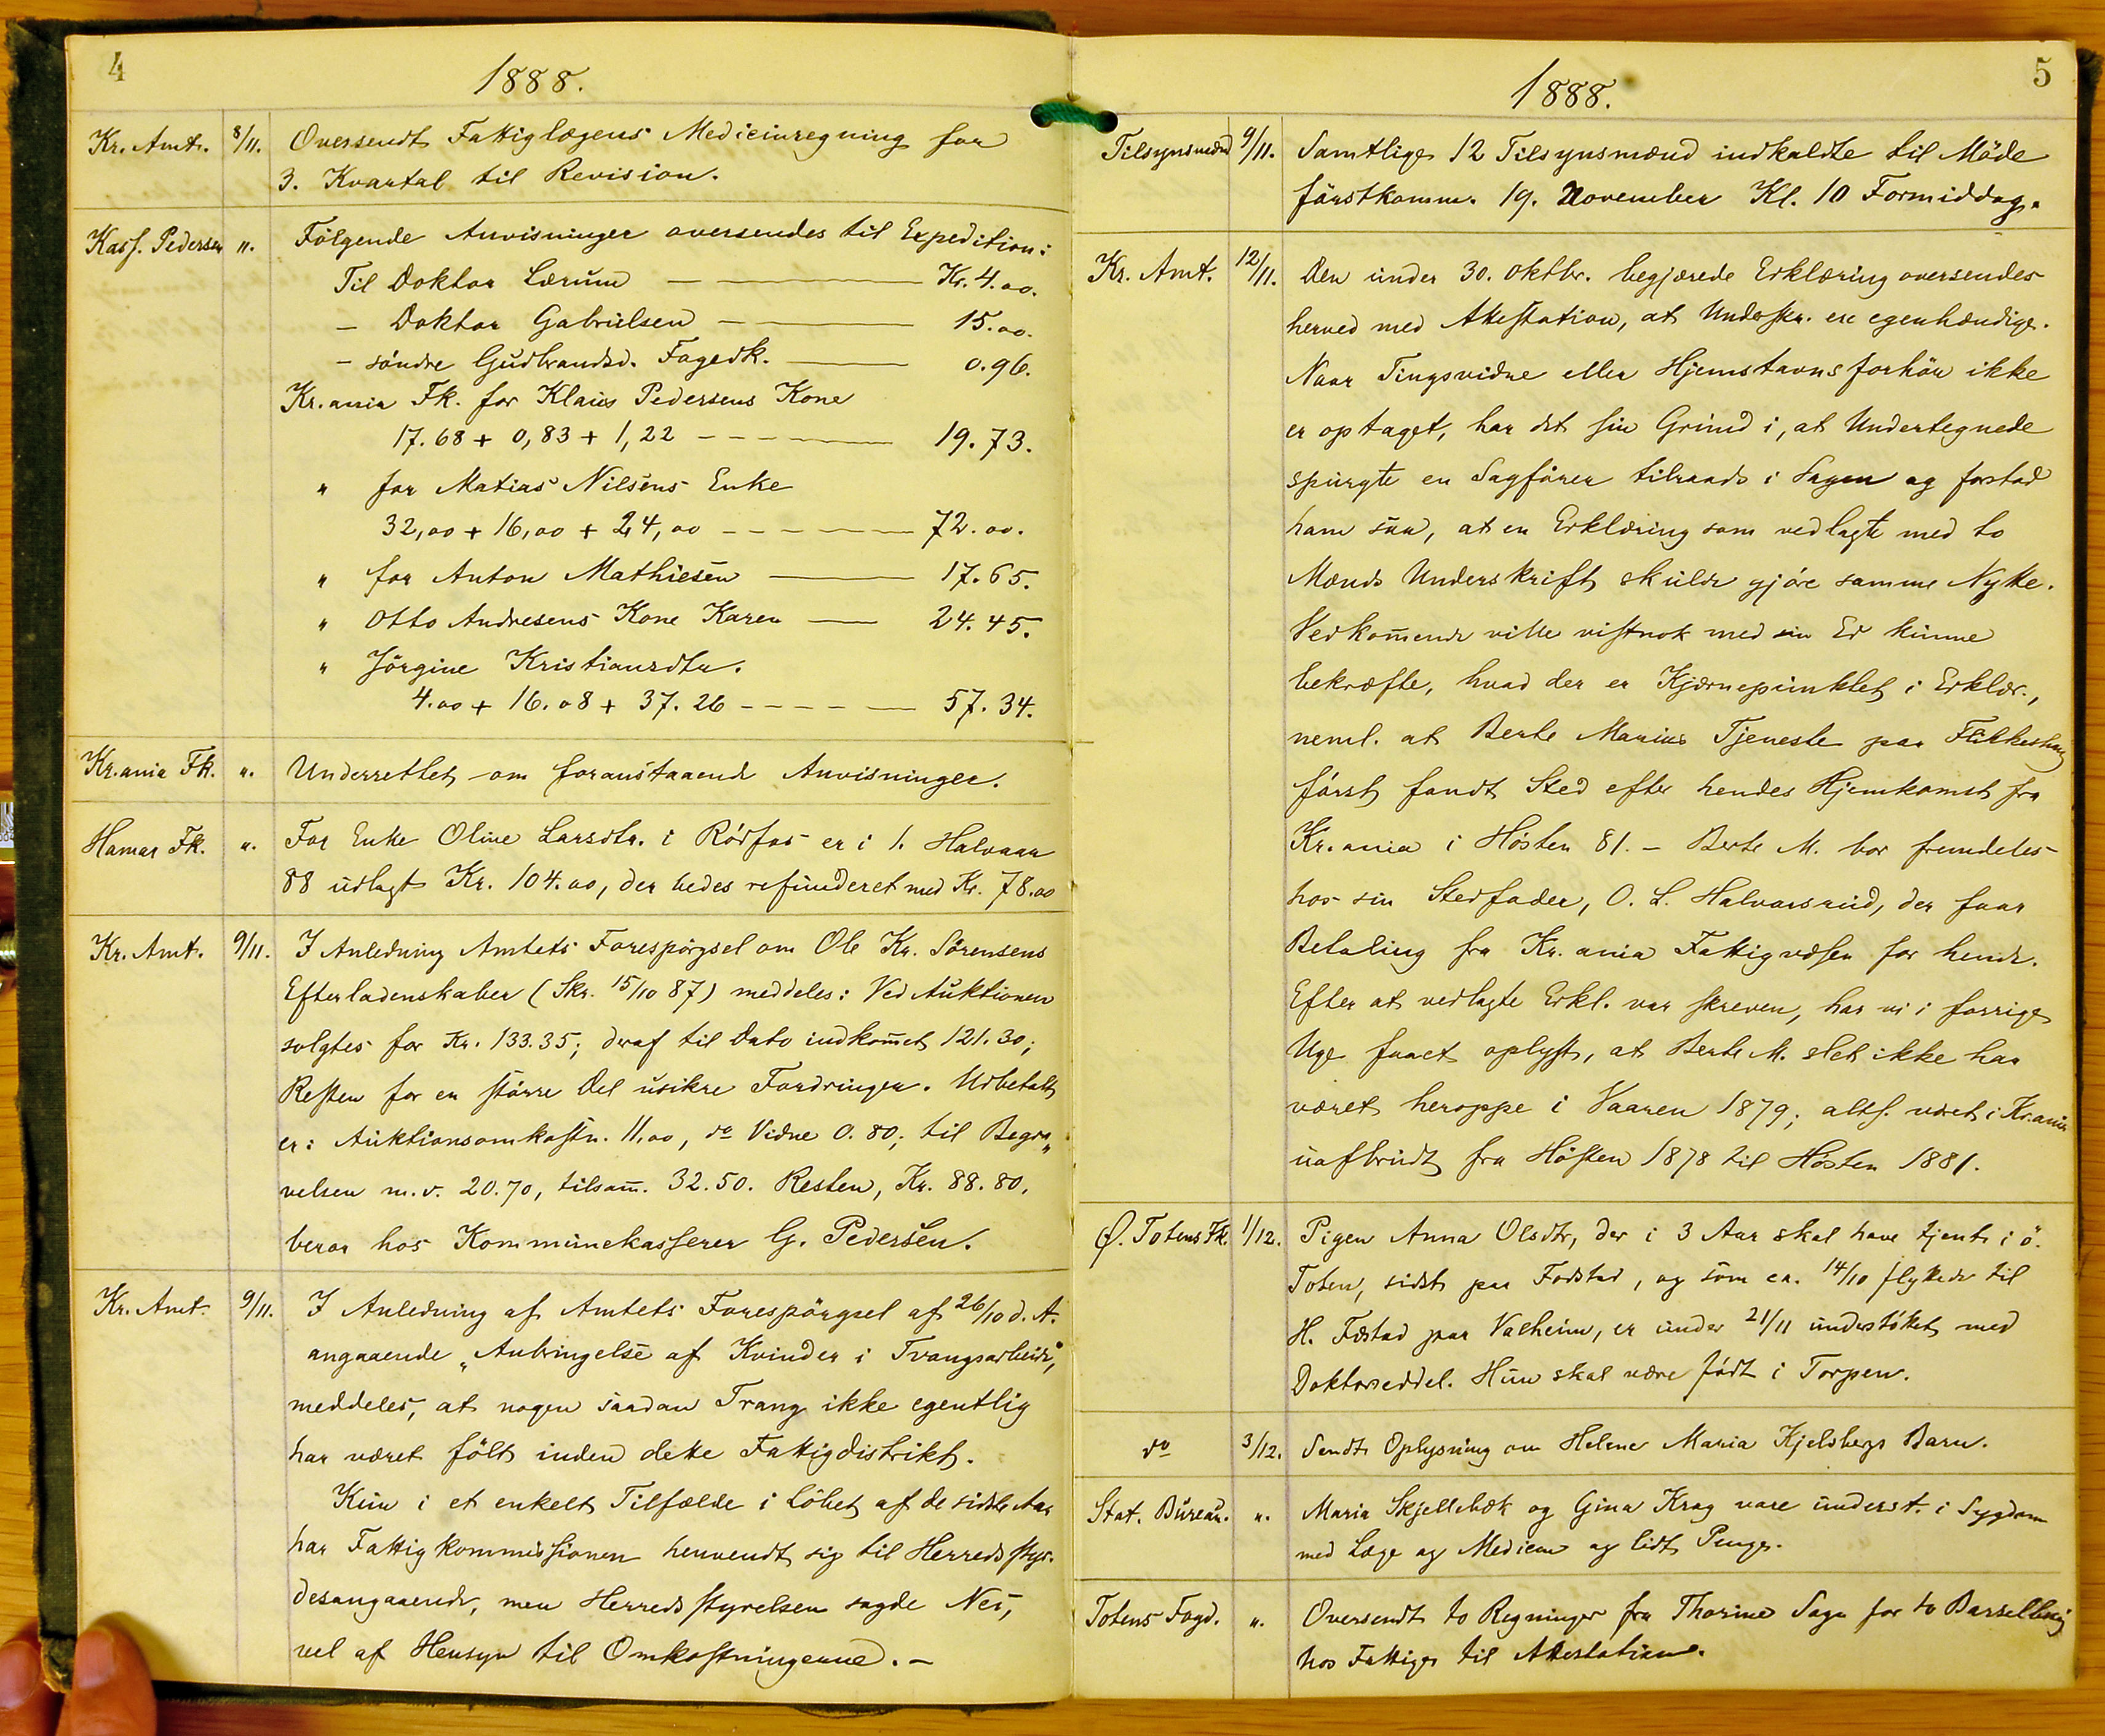 4
1888.
Kr. Amt. 8/11. Oversendt Fattiglægens Medicinregning for
3. Kvartal til Revision.
Kass. Pedersen ". Følgende Anvisninger oversendes til Expedition:
Til Doktor Lærum — Kr. 4.00.
– Doktor Gabrielsen — 15.00.
– søndre Gudbrandsd. Fogedk. — 0.96.
Kr.ania Fk. for Klaus Pedersens Kone
17.68 + 0,83 + 1,22 — 19.73.
" for Matias Nilsens Enke
32,00 + 16,00 + 24,00 — 72.00.
" for Anton Mathiesen — 17.65.
" Otto Andresens Kone Karen — 24.45.
" Jörgine Kristiansdtr.
4.00 + 16.08 + 37.26 — 57.34.
Kr.ania Fk. ". Underrettet om foranstaaende Anvisninger.
Hamar Fk. ". For Enke Oline Larsdtr. i Rödfos er i 1. Halvaar
88 udlagt Kr. 104.00, der bedes refunderet med Kr. 78.00
Kr. Amt. 9/11. I Anledning Amtets Forespörgsel om Ole Kr. Sörensens
Efterladenskaber (Skr. 15/10 87) meddeles: Ved Auktionen
solgtes for Kr. 133.35; deraf til Dato indkom̄et 121.30;
Resten for en större Del usikre Fordringer. Udbetalt
er: Auktionsomkostn. 11,00, do Vidne 0.80; til Begra„
velsen m.v. 20.70, tilsam̄. 32.50. Resten, Kr. 88.80,
beror hos Kommunekasserer G. Pedersen.
Kr. Amt. 9/11. I Anledning af Amtets Forespörgsel af 26/10 d. A.
angaaende „Anbringelse af Kvinder i Tvangsarbeide",
meddeles, at nogen saadan Trang ikke egentlig
har været fölt inden dette Fattigdistrikt.
Kun i et enkelt Tilfælde i Löbet af de sidste Aar
har Fattigkommissionen henvendt sig til Herredsstyr.
desangaaende, men Herredsstyrelsen sagde Nei,
vel af Hensyn til Omkostningerne. –
5
1888.
Tilsynsmænd 9/11. Samtlige 12 Tilsynsmænd indkaldte til Möde
förstkomm. 19. November Kl. 10 Formiddag.
Kr. Amt. 12/11. Den under 30. Oktbr. begjærede Erklæring oversendes
herved med Attestation, at Underskr. ere egenhændige.
Naar Tingsvidne eller Hjemstavnsforhör ikke
er optaget, har det sin Grund i, at Undertegnede
spurgte en Sagförer tilraads i Sagen og forstod
ham saa, at en Erklæring som vedlagte med to
Mænds Underskrift skulde gjöre samme Nytte.
Vedkom̄ende ville vistnok med sin Ed kunne
bekræfte, hvad der er Kjærnepunktet i Erklær.,
neml. at Berte Marias Tjeneste paa Flikkeshaug
först fandt Sted efter hendes Hjemkomst fra
Kr.ania i Hösten 81. – Berte M. bor fremdeles
hos sin Stedfader, O. L. Halvorsrud, der faar
Betaling fra Kr.ania Fattigvæsen for hende.
Efter at vedlagte Erkl. var skreven, har vi i forrige
Uge faaet oplyst, at Berte M. slet ikke har
været heroppe i Vaaren 1879; altf. været i Kr.ania
uafbrudt fra Hösten 1878 til Hösten 1881.
Ø. Totens Fk. 1/12. Pigen Anna Olsdtr, der i 3 Aar skal have tjent i ö.
Toten, sidst paa Fodstad, og som ca. 14/10 flyttede til
H. Fodstad paa Valheim, er under 21/11 understöttet med
Doktorseddel. Hun skal være födt i Torpen.
do 3/12. Sendt Oplysning om Helene Maria Kjelsbergs Barn.
Stat. Bureau. ". Maria Skjellebæk og Gina Krag vare underst. i Sygdom
med Læge og Medicin og lidt Penge.
Totens Fogd. ". Oversendt to Regninger fra Thorine Sogn for to
hos Fattige til Attestation.